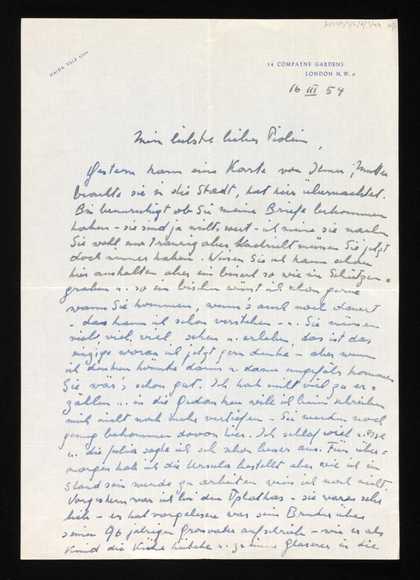 MAIDA VALE
14 COMPAYNE GARDENS
LONDON N.W.6
16 III 54
Mein liebste liebes
Gestern kam eine Karte von Ihnen, Mutter
brachte sie in die Stadt, hat hier übernachtet.
Bin beunruhigt ob Sie meine Briefe bekommen
haben - sie sind ja nichts wert - ich meine sie machen
Sie wohl nur traurig aber Nachricht müssen Sie jetzt
doch immer haben. Wissen Sie ich kann schon
hier aushalten aber ein bisserl so wie im Schützen-
graben u. so ein bisschen wüsst ich schon gerne
wann Sie kommen, wenn's auch noch dauert
- das kann ich schon verstehen - u. Sie müssen
viel, viel, viel sehen u. erleben, das ist das
einzige woran ich jetzt gern denke - aber wenn
ich denken könnte dann u. dann ungefähr kommen
Sie wär's schon gut. Ich hab nicht viel zu er-
zählen u. in die Gedanken will ich beim schreiben
mich nicht noch mehr vertiefen - Sie werden noch
genug bekommen davon hier. Ich schlaf viel u. esse
u. die Julia sagte ich seh schon besser aus. Für über-
morgen hab ich die Ursula bestellt aber wie ich im
Stand sein werde zu arbeiten weiss ich noch nicht.
Vorgestern war ich bei den - sie waren sehr
lieb - er hat vorgelesen was sein Bruder über
seinen 96 jährigen Grossvater aufschrieb - wie er als
Kind die Kühe hütete u. in die